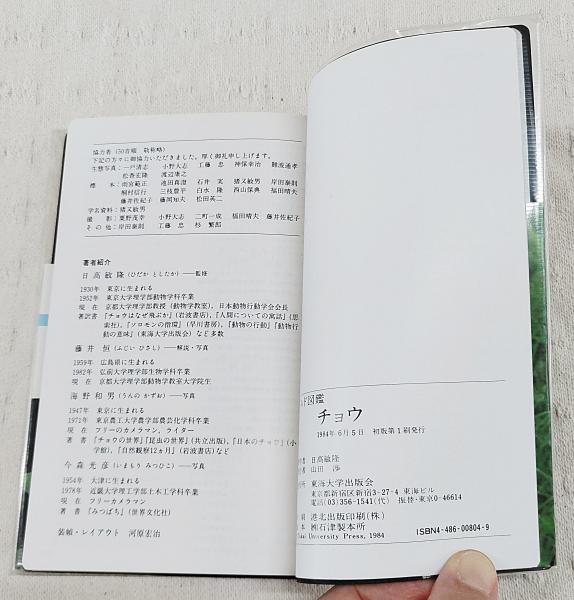 協力者 (50音順 敬称略)
下記の方々に御協力いただきました。厚く御礼申し上げます。
生態写真：一戸清志 小野大志 工藤 忠 神保幸治 難波通孝
松香宏隆 渡辺康之
標 本：雨宮範正 池田真澄 石井 実 猪又敏男 岸田泰則
桐村信行 三枝豊平 白水 隆 西山保典 福田晴夫
藤井佐紀子 藤岡知夫 松田英二
学名資料：猪又敏男
撮 影：粟野茂幸 小野大志 二町一成 福田晴夫 藤井佐紀子
その他：岸田泰則 工藤 忠 杉 繁郎
著者紹介
日高敏隆 (ひだか としたか)――監修
1930年 東京に生まれる
1952年 東京大学理学部動物学科卒業
現 在 京都大学理学部教授 (動物学教室)，日本動物行動学会会長
著訳書 『チョウはなぜ飛ぶか』(岩波書店)，『人間についての寓話』(思
索社)，『ソロモンの指環』(早川書房)，『動物の行動』『動物行
動の意味』(東海大学出版会) など多数
藤井 恒 (ふじい ひさし)――解説・写真
1959年 広島県に生まれる
1982年 弘前大学理学部生物学科卒業
現 在 京都大学理学部動物学教室大学院生
海野和男 (うんの かずお)――写真
1947年 東京に生まれる
1971年 東京農工大学農学部農芸化学科卒業
現 在 フリーのカメラマン，ライター
著 書 『チョウの世界』『昆虫の世界』(共立出版)，『日本のチョウ』(小
学館)，『自然観察12ヵ月』(岩波書店) など
今森光彦 (いまもり みつひこ)――写真
1954年 大津に生まれる
1978年 近畿大学理工学部土木工学科卒業
現 在 フリーカメラマン
著 書 『みつばち』(世界文化社)
装幀・レイアウト 河原宏治
ド図鑑
チョウ
1984年6月5日 初版第1刷発行
者 日高敏隆
者 山田 渉
所 東海大学出版会
東京都新宿区新宿3-27-4 東海ビル
電話(03)356-1541(代) 振替・東京0-46614
刷 港北出版印刷(株)
本 ㈱石津製本所
University Press, 1984
ISBN4-486-00804-9